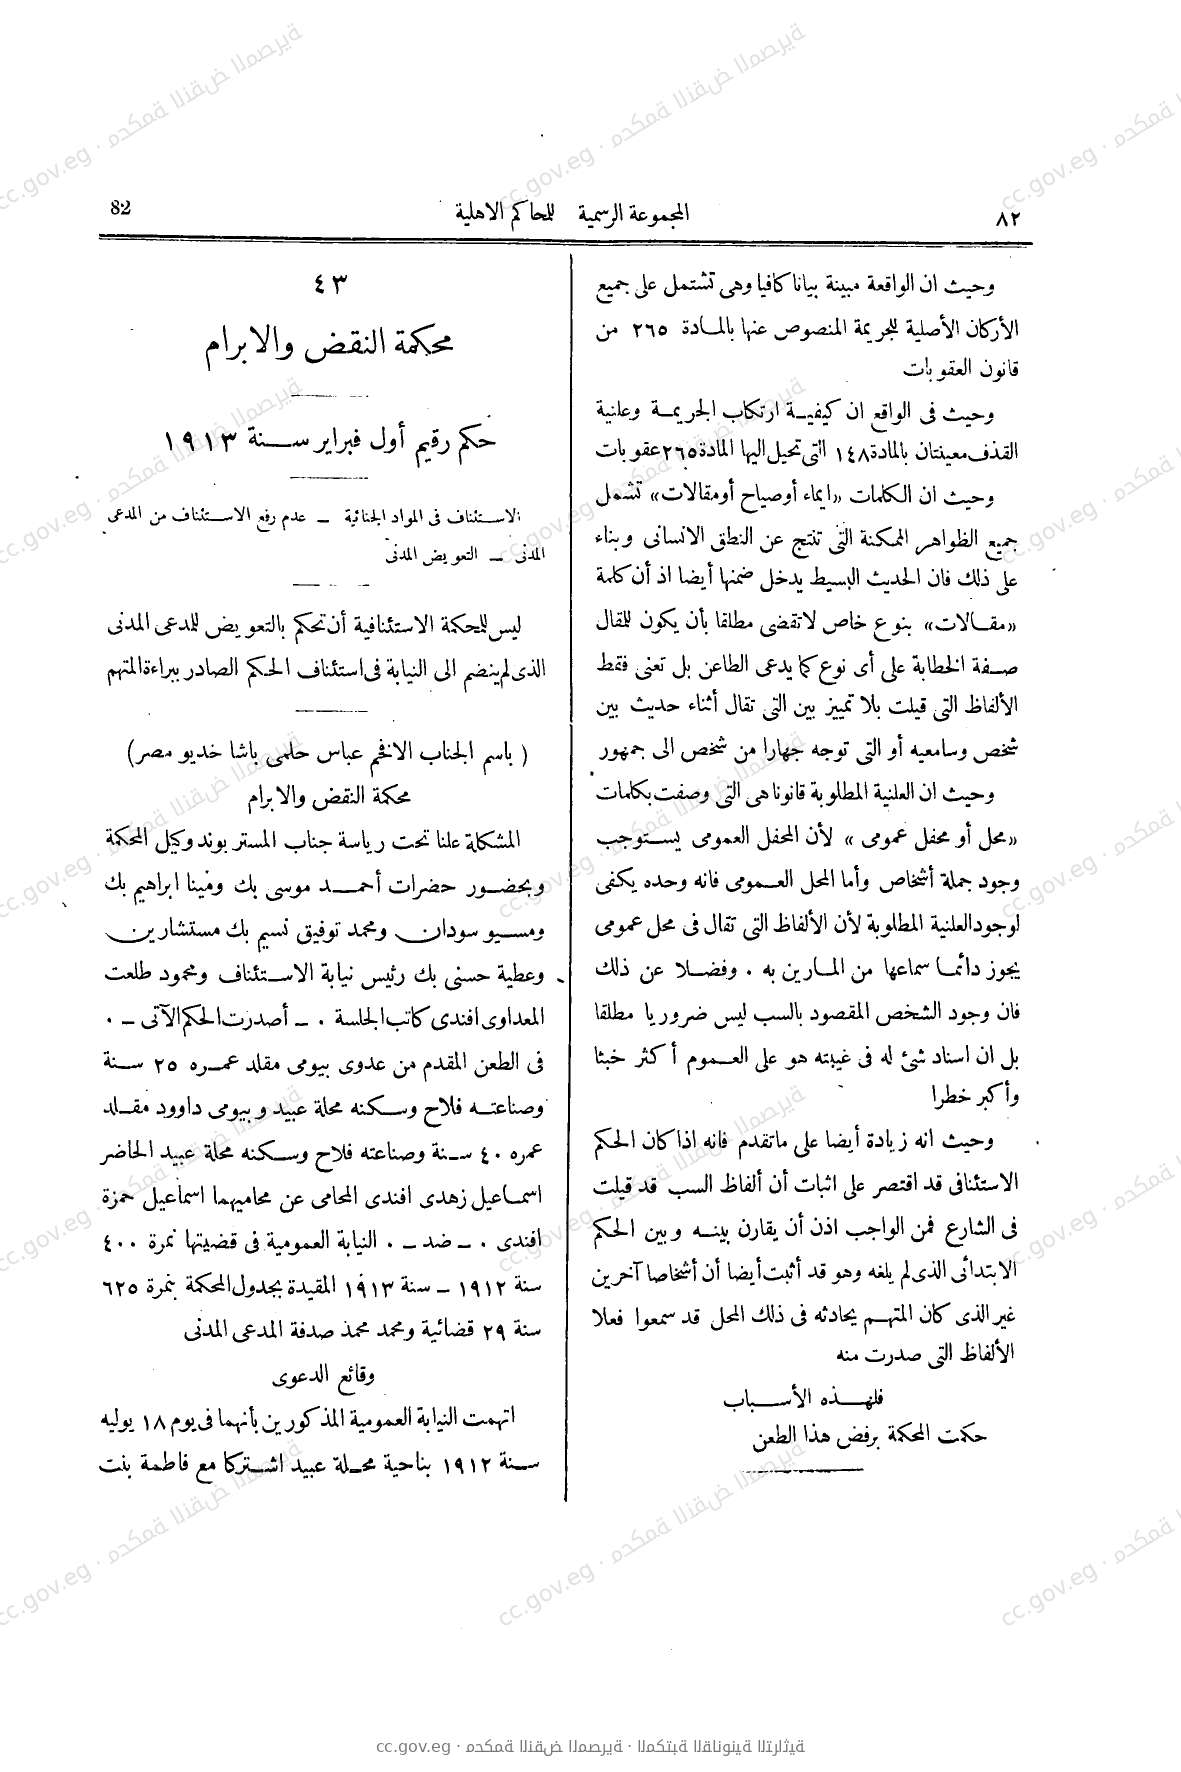 ٨٢
المجموعة الرسمية للمحاكم الاهلية
82
وحيث ان الواقعة مبينة بيانا كافيا وهى تشتمل على جميع
الأركان الأصلية للجريمة المنصوص عنها بالمادة ٢٦٥ من
قانون العقوبات
وحيث فى الواقع ان كيفية ارتكاب الجريمة وعلنية
القذف معينتان بالمادة ١٤٨ التى تحيل اليها المادة ٢٦٥ عقوبات
وحيث ان الكلمات «ايماء أو صياح أو مقالات» تشمل
جميع الظواهر الممكنة التى تنتج عن النطق الانسانى وبناء
على ذلك فان الحديث البسيط يدخل ضمنها أيضا اذ أن كلمة
«مقالات» بنوع خاص لا تقضى مطلقا بأن يكون للمقال
صفة الخطابة على أى نوع كما يدعى الطاعن بل تعنى فقط
الألفاظ التى قيلت بلا تمييز بين التى تقال أثناء حديث بين
شخص وسامعيه أو التى توجه جهارا من شخص الى جمهور
وحيث ان العلنية المطلوبة قانونا هى التى وصفت بكلمات
«محل أو محفل عمومى» لأن المحفل العمومى يستوجب
وجود جملة أشخاص وأما المحل العمومى فانه وحده يكفى
لوجود العلنية المطلوبة لأن الألفاظ التى تقال فى محل عمومى
يجوز دائما سماعها من المارين به . وفضلا عن ذلك
فان وجود الشخص المقصود بالسب ليس ضروريا مطلقا
بل ان اسناد شئ له فى غيبته هو على العموم أكثر خبثا
وأكبر خطرا
وحيث انه زيادة أيضا على ما تقدم فانه اذا كان الحكم
الاستئنافى قد اقتصر على اثبات أن ألفاظ السب قد قيلت
فى الشارع فمن الواجب اذن أن يقارن بينه وبين الحكم
الابتدائى الذى لم يلغه وهو قد أثبت أيضا أن أشخاصا آخرين
غير الذى كان المتهم يحادثه فى ذلك المحل قد سمعوا فعلا
الألفاظ التى صدرت منه
فلهذه الأسباب
حكمت المحكمة برفض هذا الطعن
٤٣
محكمة النقض والابرام
حكم رقيم أول فبراير سنة ١٩١٣
الاستئناف فى المواد الجنائية – عدم رفع الاستئناف من المدعى
المدنى – التعويض المدنى
ليس للمحكمة الاستئنافية أن تحكم بالتعويض للمدعى المدنى
الذى لم ينضم الى النيابة فى استئناف الحكم الصادر ببراءة المتهم
( باسم الجناب الافخم عباس حلمى باشا خديو مصر)
محكمة النقض والابرام
المشكلة علنا تحت رياسة جناب المستر بوند وكيل المحكمة
وبحضور حضرات أحمد موسى بك ومينا ابراهيم بك
ومسيو سودان ومحمد توفيق نسيم بك مستشارين
وعطية حسنى بك رئيس نيابة الاستئناف ومحمود طلعت
المعداوى افندى كاتب الجلسة . – أصدرت الحكم الآتى – .
فى الطعن المقدم من عدوى بيومى مقلد عمره ٢٥ سنة
وصناعته فلاح وسكنه محلة عبيد وبيومى داوود مقلد
عمره ٤٠ سنة وصناعته فلاح وسكنه محلة عبيد الحاضر
اسماعيل زهدى افندى المحامى عن محاميهما اسماعيل حمزة
افندى . – ضد – . النيابة العمومية فى قضيتها نمرة ٤٠٠
سنة ١٩١٢ – سنة ١٩١٣ المقيدة بجدول المحكمة بنمرة ٦٢٥
سنة ٢٩ قضائية ومحمد محمد صدفة المدعى المدنى
وقائع الدعوى
اتهمت النيابة العمومية المذكورين بأنهما فى يوم ١٨ يوليه
سنة ١٩١٢ بناحية محلة عبيد اشتركا مع فاطمة بنت
cc.gov.eg · محكمة النقض المصرية · المكتبة القانونية التراثية